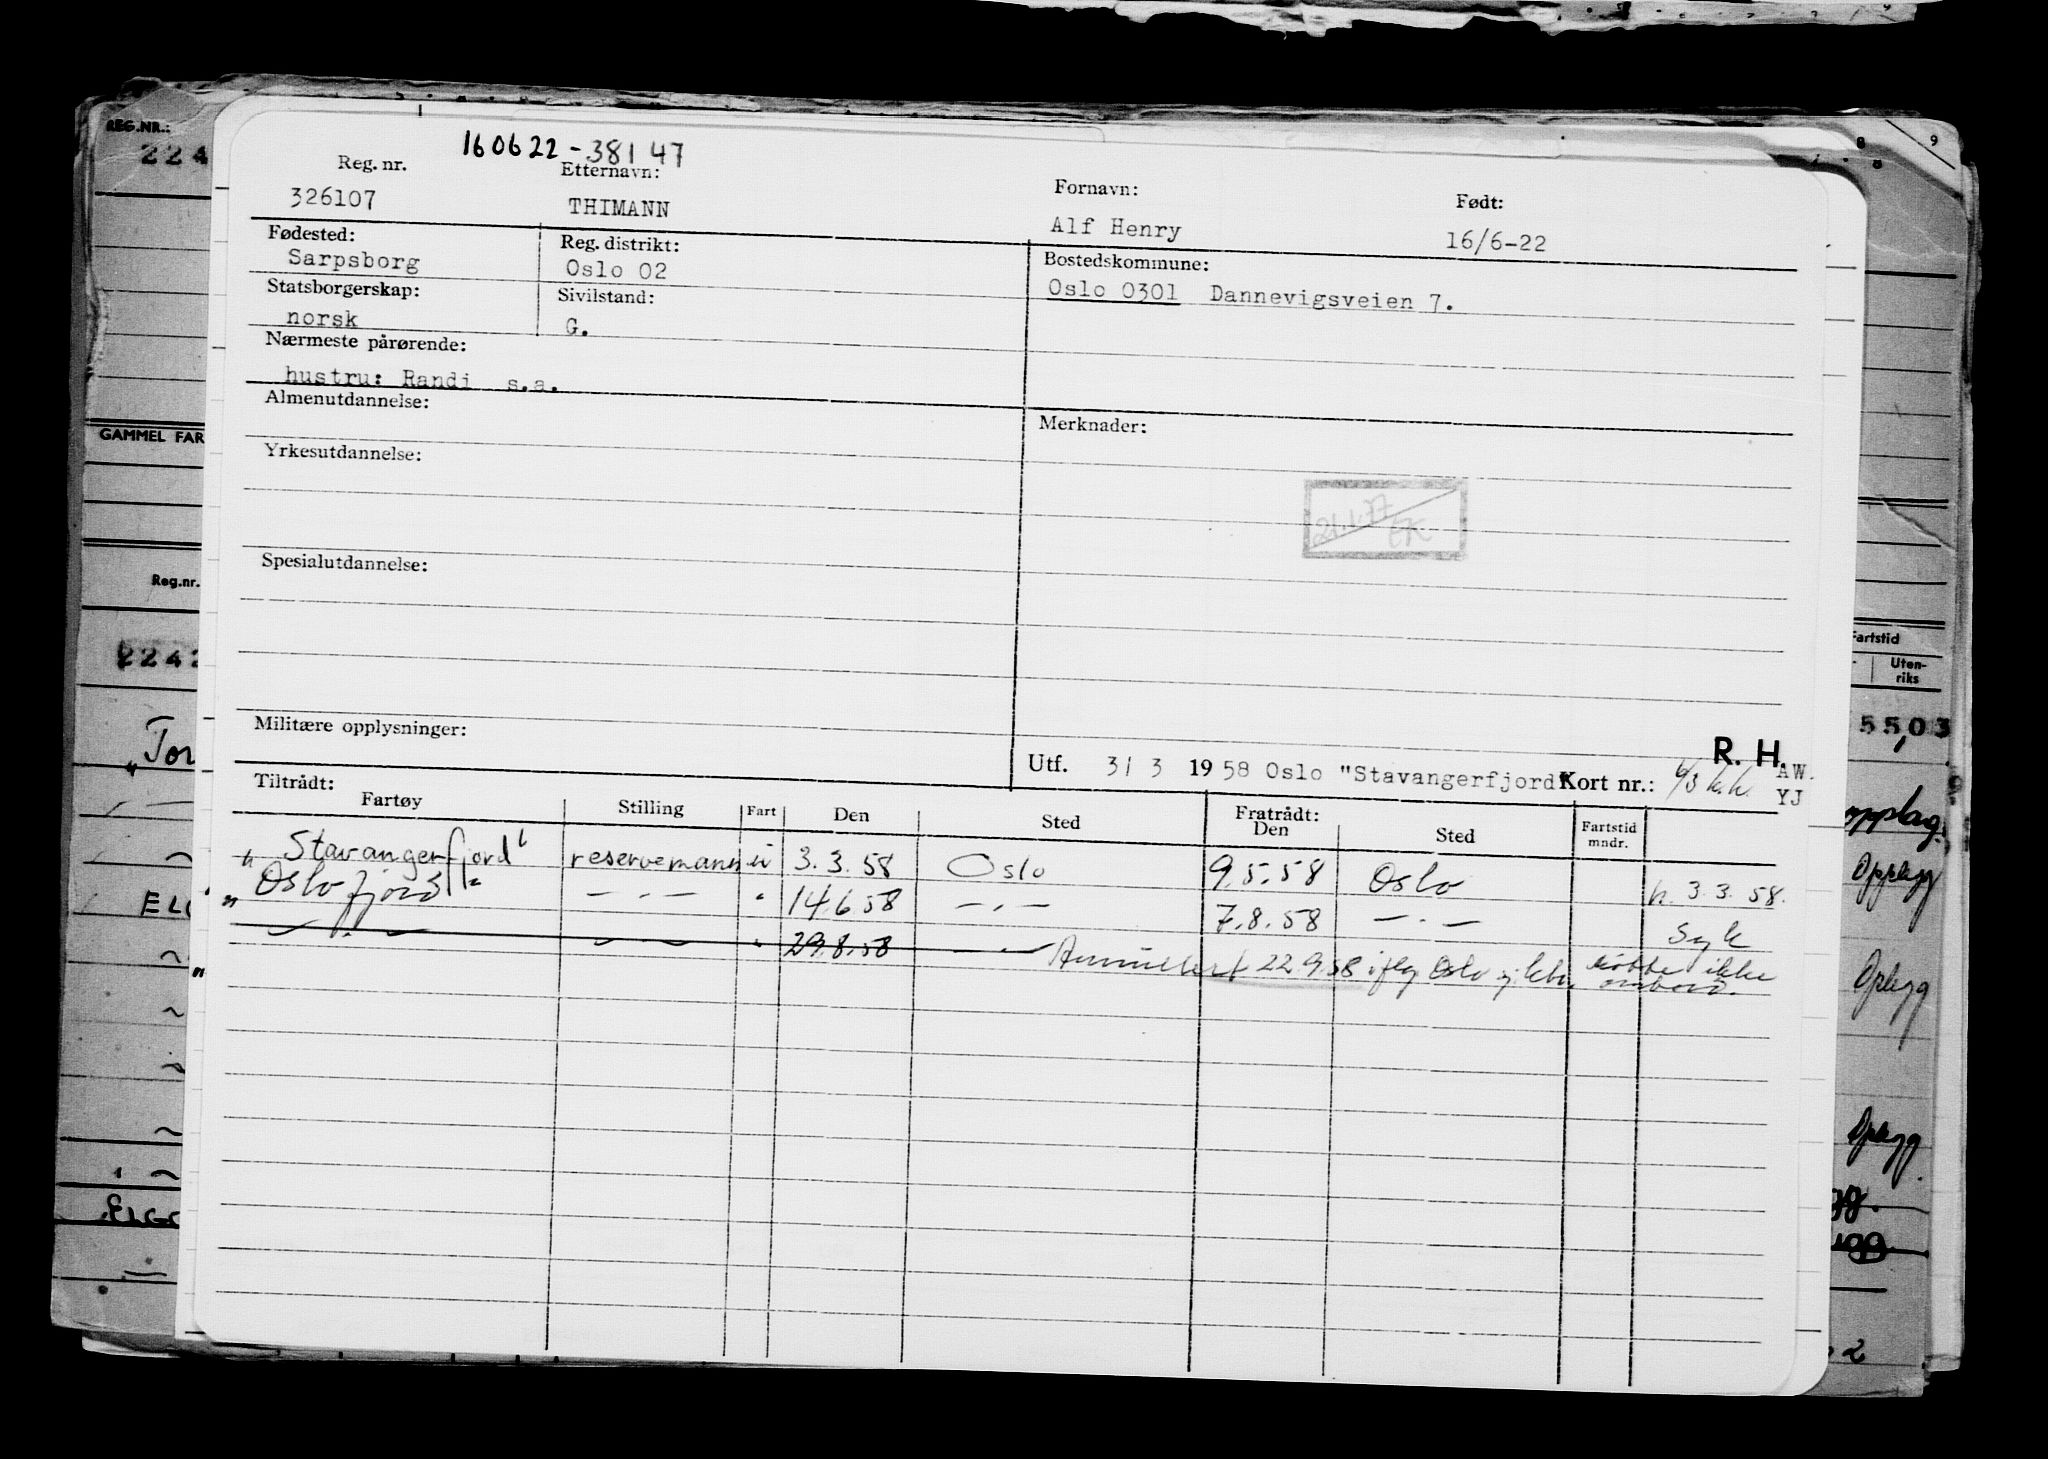 REG.NR.:
224
9
8
160622-38147
Reg. nr. Etternavn: Fornavn: Født:
326107 THIMANN Alf Henry 16/6-22
Fødested: Reg. distrikt: Bostedskommune:
Sarpsborg Oslo 02 Oslo 0301 Dannevigsveien 7.
Statsborgerskap: Sivilstand:
norsk G.
Nærmeste pårørende:
hustru: Randi s.a.
Almenutdannelse: Merknader:
GAMMEL FAR
Yrkesutdannelse:
21.1.77
EK
Spesialutdannelse:
Reg.nr.
Fartstid
Uten-
riks
2242
Militære opplysninger:
5503
R. H.
Utf. 31 3 1958 Oslo "Stavangerfjord" Kort nr.: AW.
YJ
Tiltrådt: Fratrådt:
Fartøy Stilling Fart Den Sted Den Sted Fartstid mndr.
"Stavangerfjord" reservemann u 3.3.58 Oslo 9.5.58 Oslo h. 3.3.58.
"Oslofjord" — . — " 14.6.58 — . — 7.8.58 — . — Syk
— . — — — " 29.8.58 — — Annullert 22.9.58 iflg Oslo møtte ikke
ombord.
Tor
opplag.
Opplegg
Oplegg
Oplegg
gg.
2